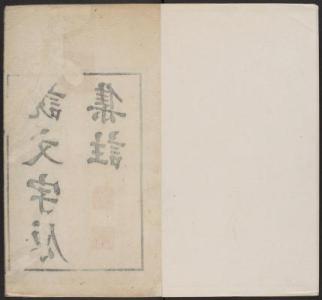 說文字原
集註